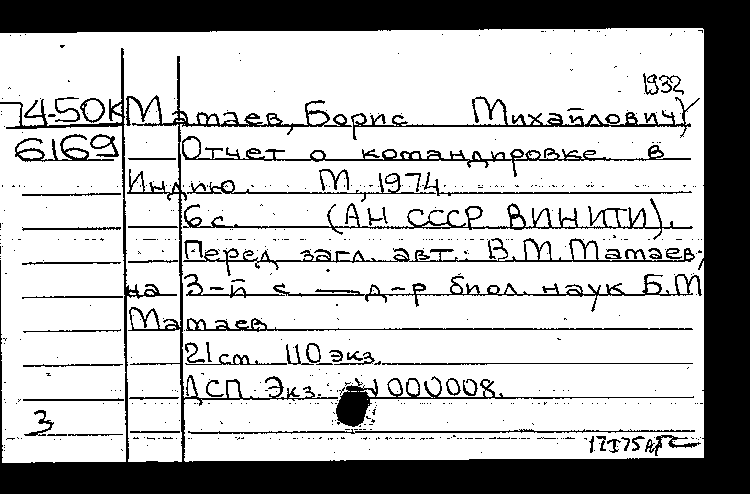 1932
74-50К Матаев, Борис Михайлович
6169 Отчет о командировке в
Индию. М., 1974.
6 с. (АН СССР ВИНИТИ).
Перед загл. авт.: В.М. Матаев;
на 3-й с. — д-р биол. наук Б.М
Матаев
21 см. 110 экз.
ДСП. Экз. N 000008.
3
17 I 75